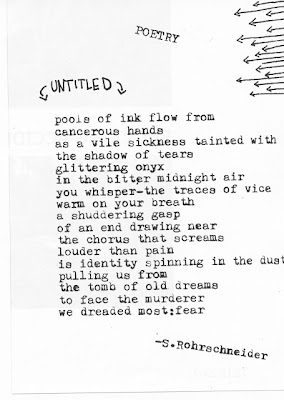 POETRY
UNTITLED
pools of ink flow from
cancerous hands
as a vile sickness tainted with
the shadow of tears
glittering onyx
in the bitter midnight air
you whisper-the traces of vice
warm on your breath
a shuddering gasp
of an end drawing near
the chorus that screams
louder than pain
is identity spinning in the dust
pulling us from
the tomb of old dreams
to face the murderer
we dreaded most:fear
-S.Rohrschneider